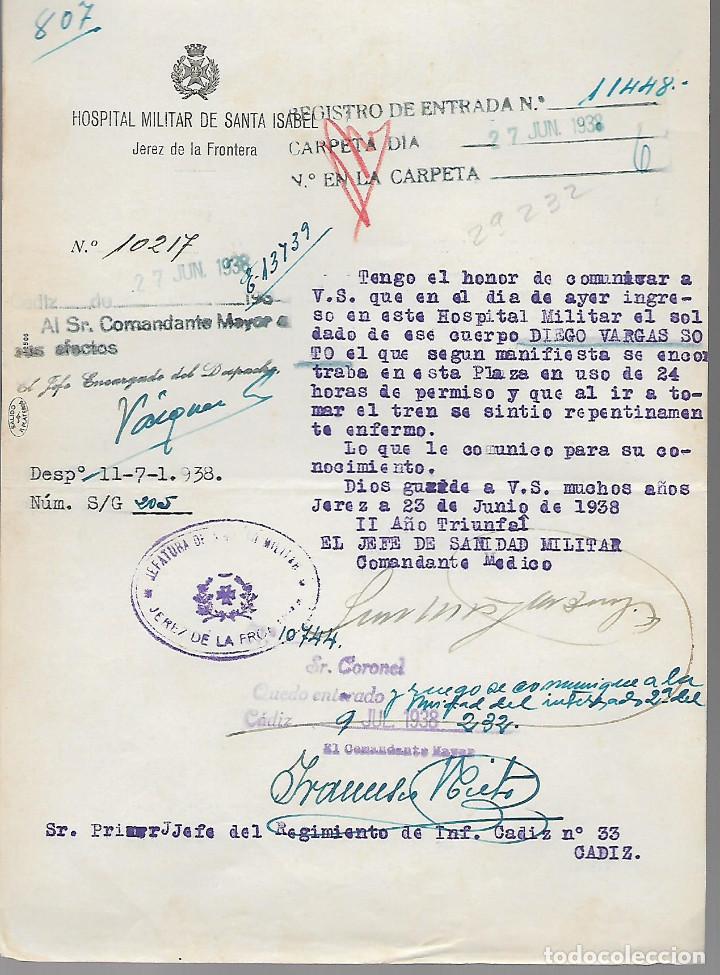 807
HOSPITAL MILITAR DE SANTA ISABEL
Jerez de la Frontera
REGISTRO DE ENTRADA N.º 11448.-
CARPETA DIA 27 JUN. 1938
N.º EN LA CARPETA 6
29232
N.º 10217
E-13739
27 JUN. 1938
Cadiz de 193
Al Sr. Comandante Mayor a
sus efectos
El Jefe Encargado del Despacho,
Despº 11-7-1.938.
Núm. S/G 205
Tengo el honor de comunicar a
V.S. que en el dia de ayer ingre-
so en este Hospital Militar el sol
dado de ese cuerpo DIEGO VARGAS SO
TO el que segun manifiesta se encon
traba en esta Plaza en uso de 24
horas de permiso y que al ir a to-
mar el tren se sintio repentinamen
te enfermo.
Lo que le comunico para su co-
nocimiento.
Dios guarde a V.S. muchos años
Jerez a 23 de Junio de 1938
II Año Triunfal
EL JEFE DE SANIDAD MILITAR
Comandante Medico
JEFATURA DE SANIDAD MILITAR
JEREZ DE LA FRONTERA
10744.
Sr. Coronel
Quedo enterado y ruego se comunique a la
unidad del interesado 2ª del
Cádiz 9 JUL. 1938 232.
El Comandante Mayor
Francisco Nieto
Sr. Primer Jefe del Regimiento de Inf. Cadiz nº 33
CADIZ.
todocoleccion.net